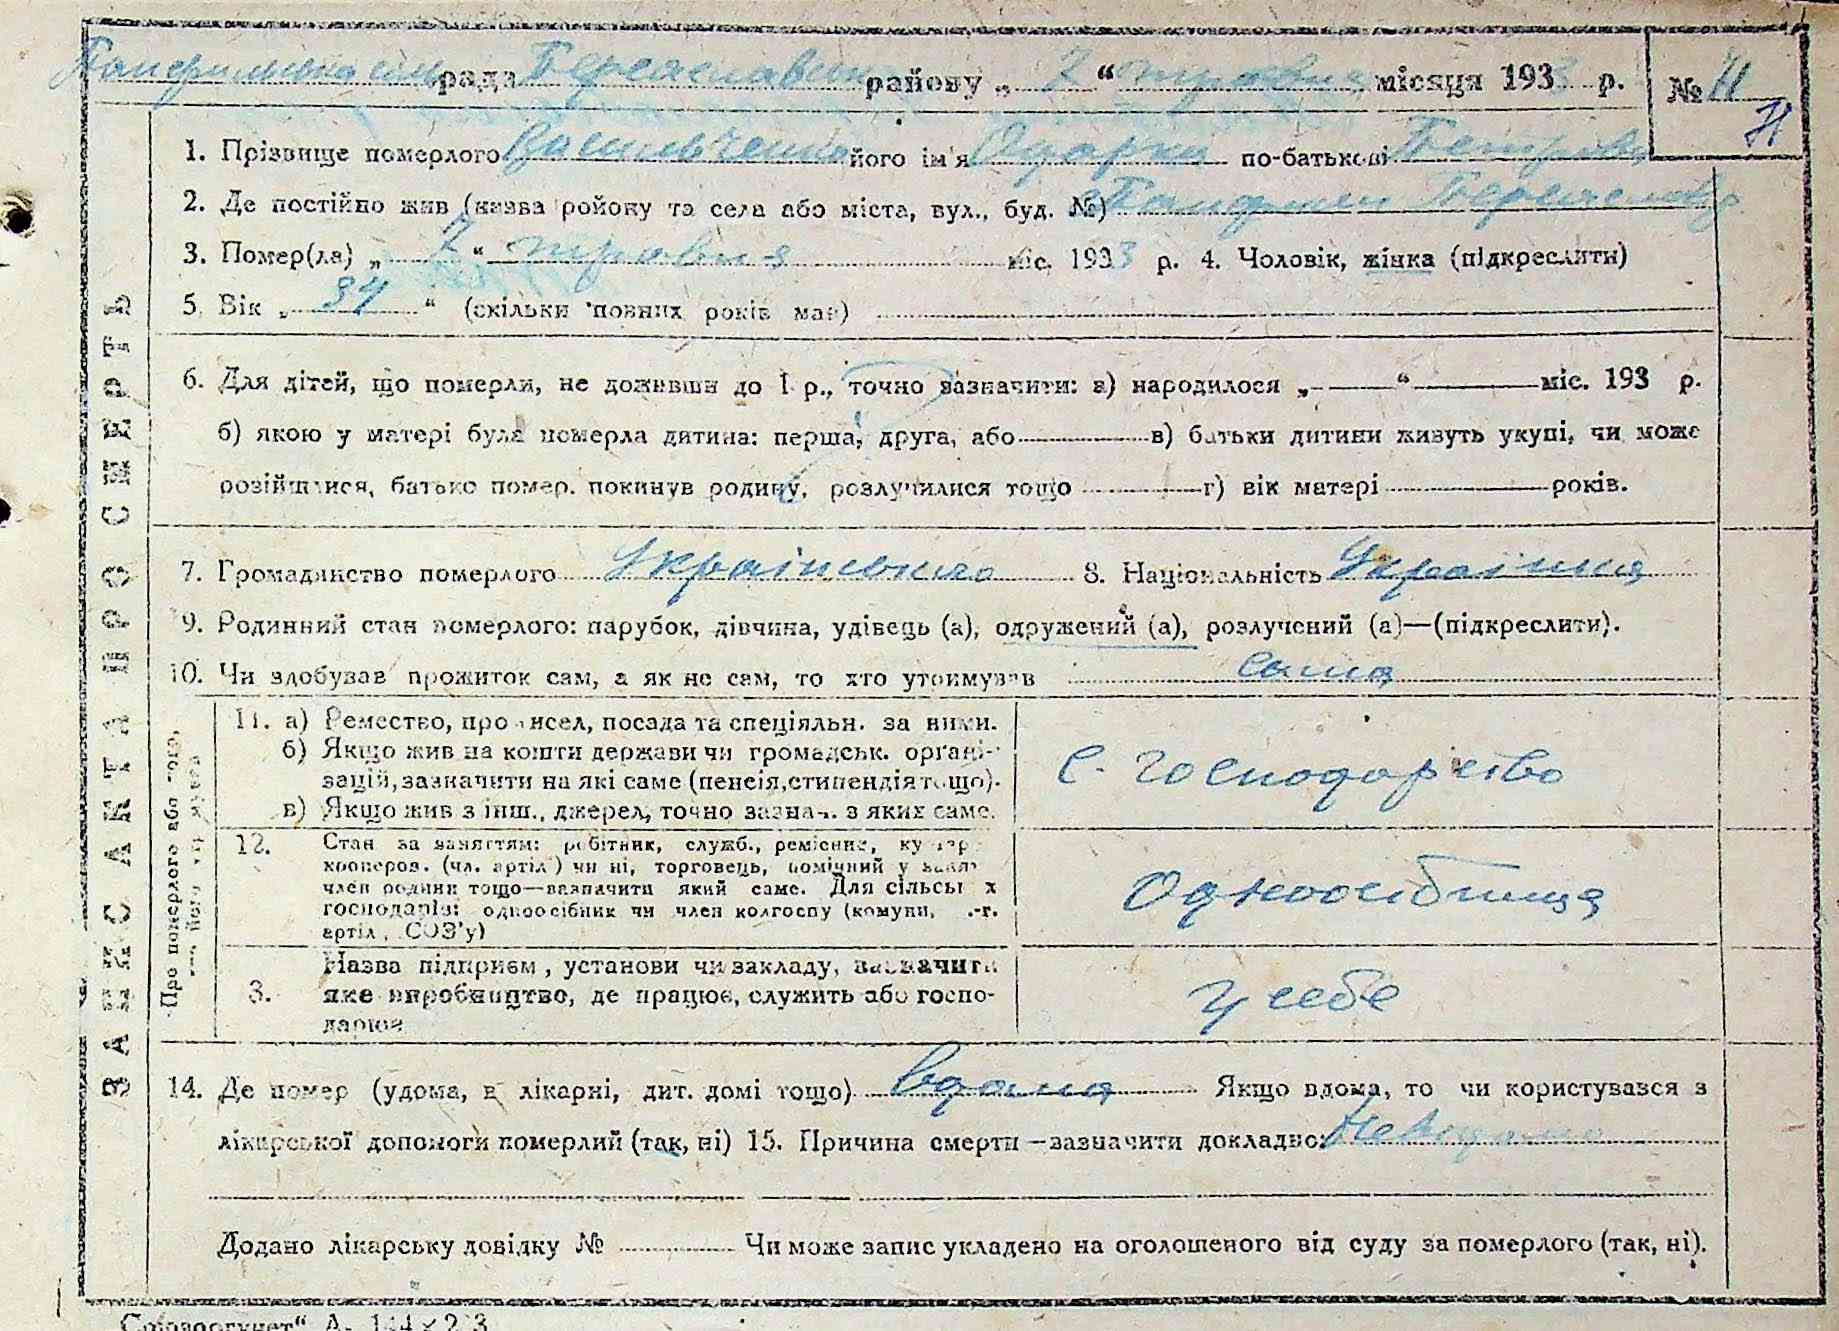 рада райову „ 7 “ травня місяця 1933 р. № 11
71
1. Прізвище померлого Васильченко його ім'я Одарка по-батькові Петрівна
2. Де постійно жив (назва ройону та села або міста, вул., буд. №)
3. Помер(ла) „ 7 “ травня міс. 1933 р. 4. Чоловік, жінка (підкреслити)
5. Вік „ 34 “ (скільки повних років мав)
6. Для дітей, що померли, не доживши до 1 р., точно зазначити: а) народилося „ — “ — міс. 193 р.
б) якою у матері була померла дитина: перша, друга, або в) батьки дитини живуть укупі, чи може
розійшлися, батько помер. покинув родину, розлучилися тощо г) вік матері років.
7. Громадянство померлого 8. Національність Українка
9. Родинний стан померлого: парубок, дівчина, удівець (а), одружений (а), розлучений (а)—(підкреслити).
10. Чи здобував прожиток сам, а як не сам, то хто утримував сама
11. а) Ремество, промисел, посада та спеціяльн. за ними.
б) Якщо жив на кошти держави чи громадськ. органі-
зацій, зазначити на які саме (пенсія, стипендія тощо).
в) Якщо жив з інш., джерел, точно зазнач. з яких саме.
С. Господарство
12. Стан за заняттям: робітник, служб., ремісник, кустар
кооперов. (чл. артіл.) чи ні, торговець, помічний у
член родини тощо—зазначити який саме. Для сільськ х
господарів: одноосібник чи член колгоспу (комуни, .-г.
артіл , СОЗ'у)
Одноосібниця
3. Назва підприєм , установи чи закладу, зазначити
яке виробництво, де працює, служить або госпо-
дарює
У себе
14. Де помер (удома, в лікарні, дит. домі тощо) вдома Якщо вдома, то чи користувався з
лікарської допомоги померлий (так, ні) 15. Причина смерти—зазначити докладно: Невідомо
Додано лікарську довідку № Чи може запис укладено на оголошеного від суду за померлого (так, ні).
ЗАПИС АКТА ПРО СМЕРТЬ
Про померлого або того,